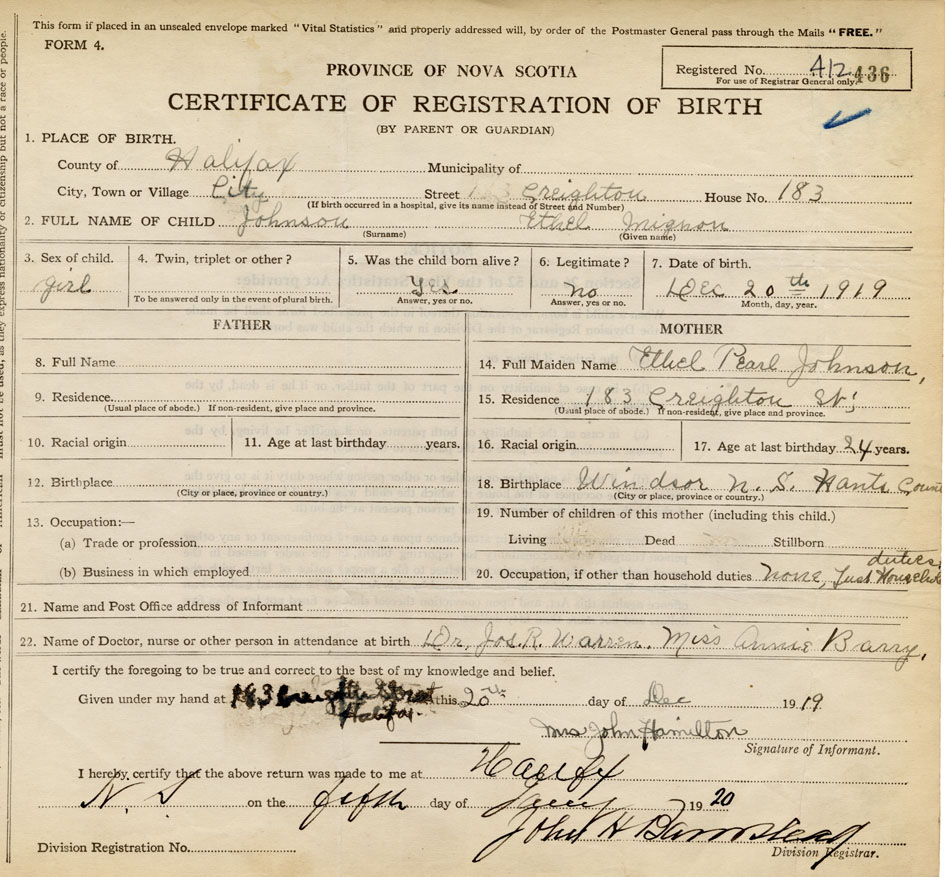 This form if placed in an unsealed envelope marked "Vital Statistics" and properly addressed will, by order of the Postmaster General pass through the Mails "FREE."
FORM 4.
Registered No. 412 436
For use of Registrar General only.
PROVINCE OF NOVA SCOTIA
CERTIFICATE OF REGISTRATION OF BIRTH
(BY PARENT OR GUARDIAN)
1. PLACE OF BIRTH.
County of Halifax Municipality of
City, Town or Village City Street Creighton House No. 183
(If birth occurred in a hospital, give its name instead of Street and Number)
2. FULL NAME OF CHILD Johnson Ethel Mignon
(Surname) (Given name)
3. Sex of child. 4. Twin, triplet or other? 5. Was the child born alive? 6. Legitimate? 7. Date of birth.
girl Yes no Dec 20th 1919
To be answered only in the event of plural birth. Answer, yes or no. Answer, yes or no. Month, day, year.
FATHER
8. Full Name
9. Residence
(Usual place of abode.) If non-resident, give place and province.
10. Racial origin 11. Age at last birthday years.
12. Birthplace
(City or place, province or country.)
13. Occupation:—
(a) Trade or profession
(b) Business in which employed
MOTHER
14. Full Maiden Name Ethel Pearl Johnson,
15. Residence 183 Creighton St;
(Usual place of abode.) If non-resident, give place and province.
16. Racial origin 17. Age at last birthday 24 years.
18. Birthplace Windsor N. S. Hants
(City or place, province or country.)
19. Number of children of this mother (including this child.)
Living Dead Stillborn
duties
20. Occupation, if other than household duties none, Just
21. Name and Post Office address of Informant
22. Name of Doctor, nurse or other person in attendance at birth Dr. Jos. R. Warren. Miss Annie Barry,
I certify the foregoing to be true and correct to the best of my knowledge and belief.
Given under my hand at 183 Creighton Street this 20th day of Dec 1919
Halifax.
Mrs John Hamilton
Signature of Informant.
I hereby certify that the above return was made to me at Halifax
N. S on the fifth day of 1920
John H Barnstead
Division Registration No. Division Registrar.